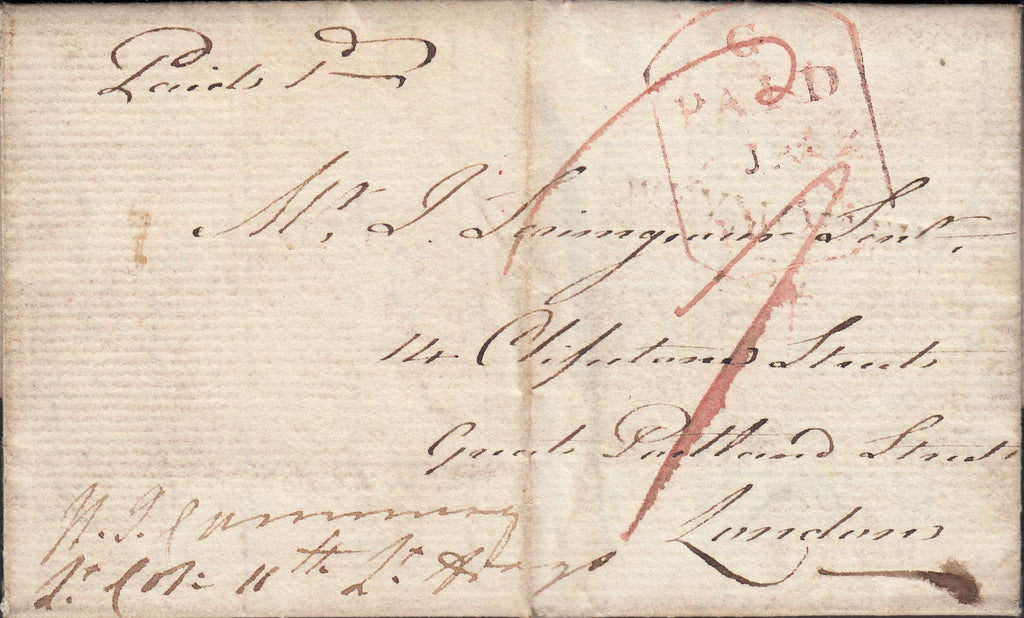 Paid 1d
G
PAID
Mr. J. Scrimgeour Senr.
14 Clipstone Street
Great Portland Street
London
H. J. Cumming
Lt. Col: 11th Lt. Drags